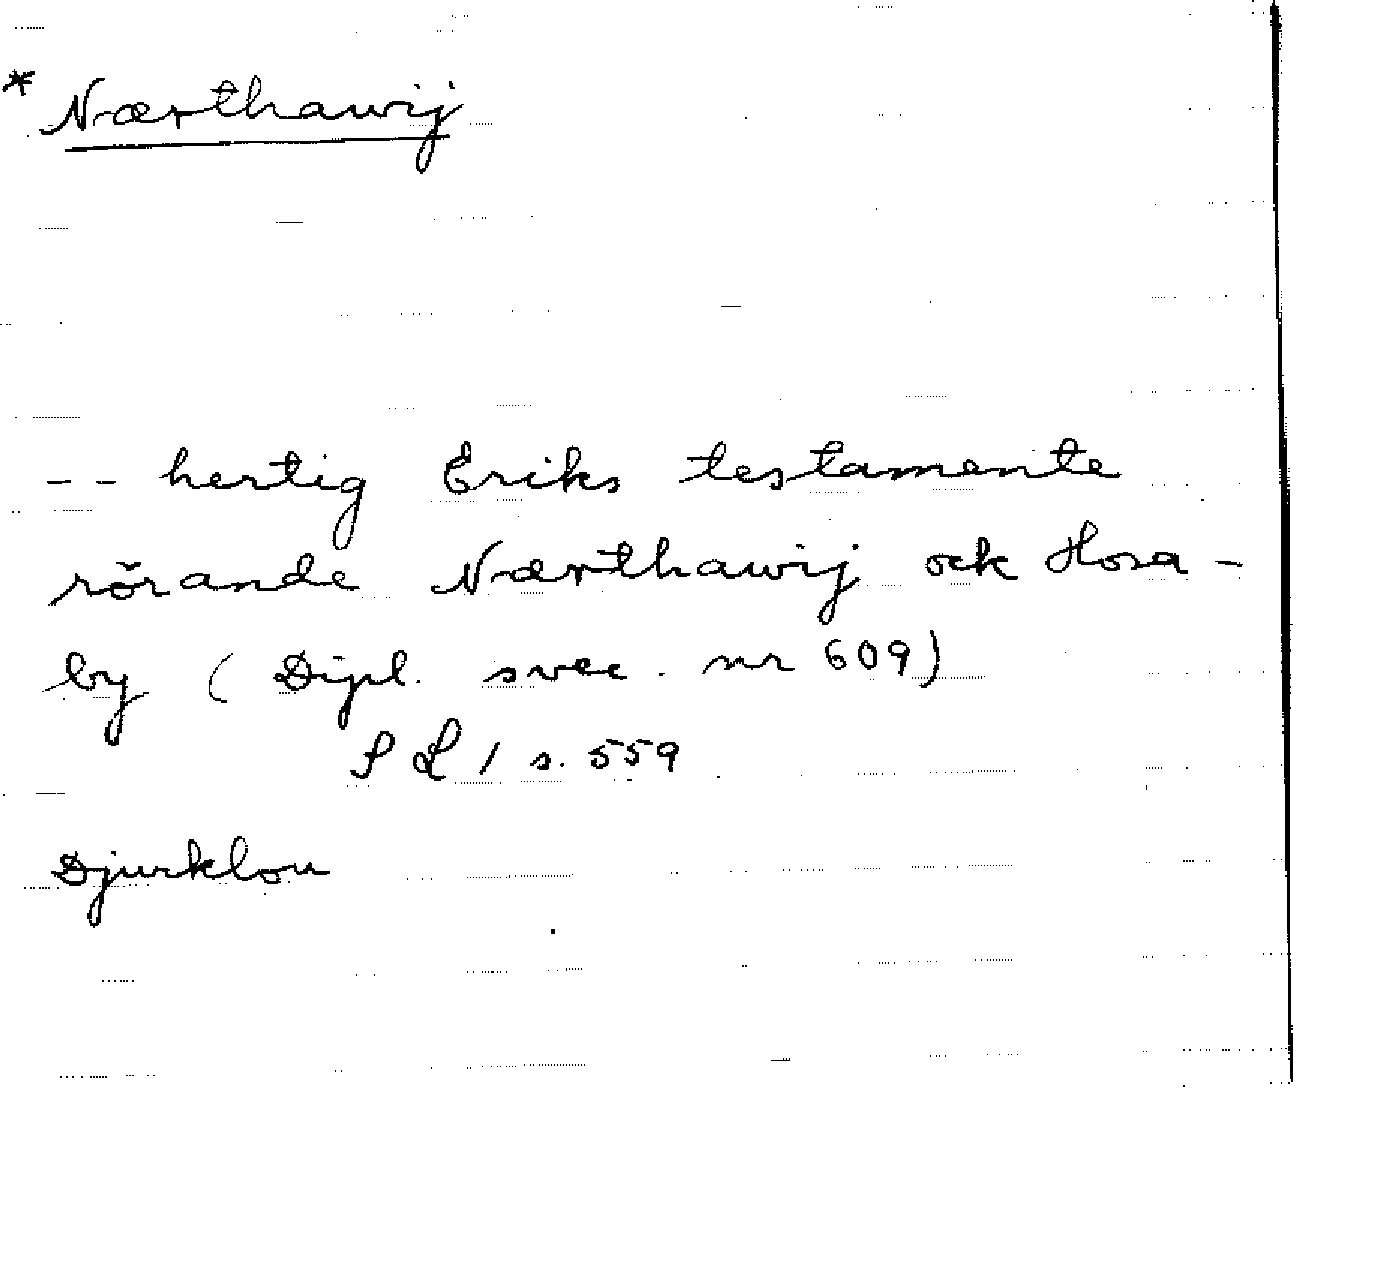 * Nærthawij
-- hertig Eriks testamente
rörande Nærthawij ock Hosa-
by (Dipl. svec. nr 609)
SL 1 s. 559
Djurklou